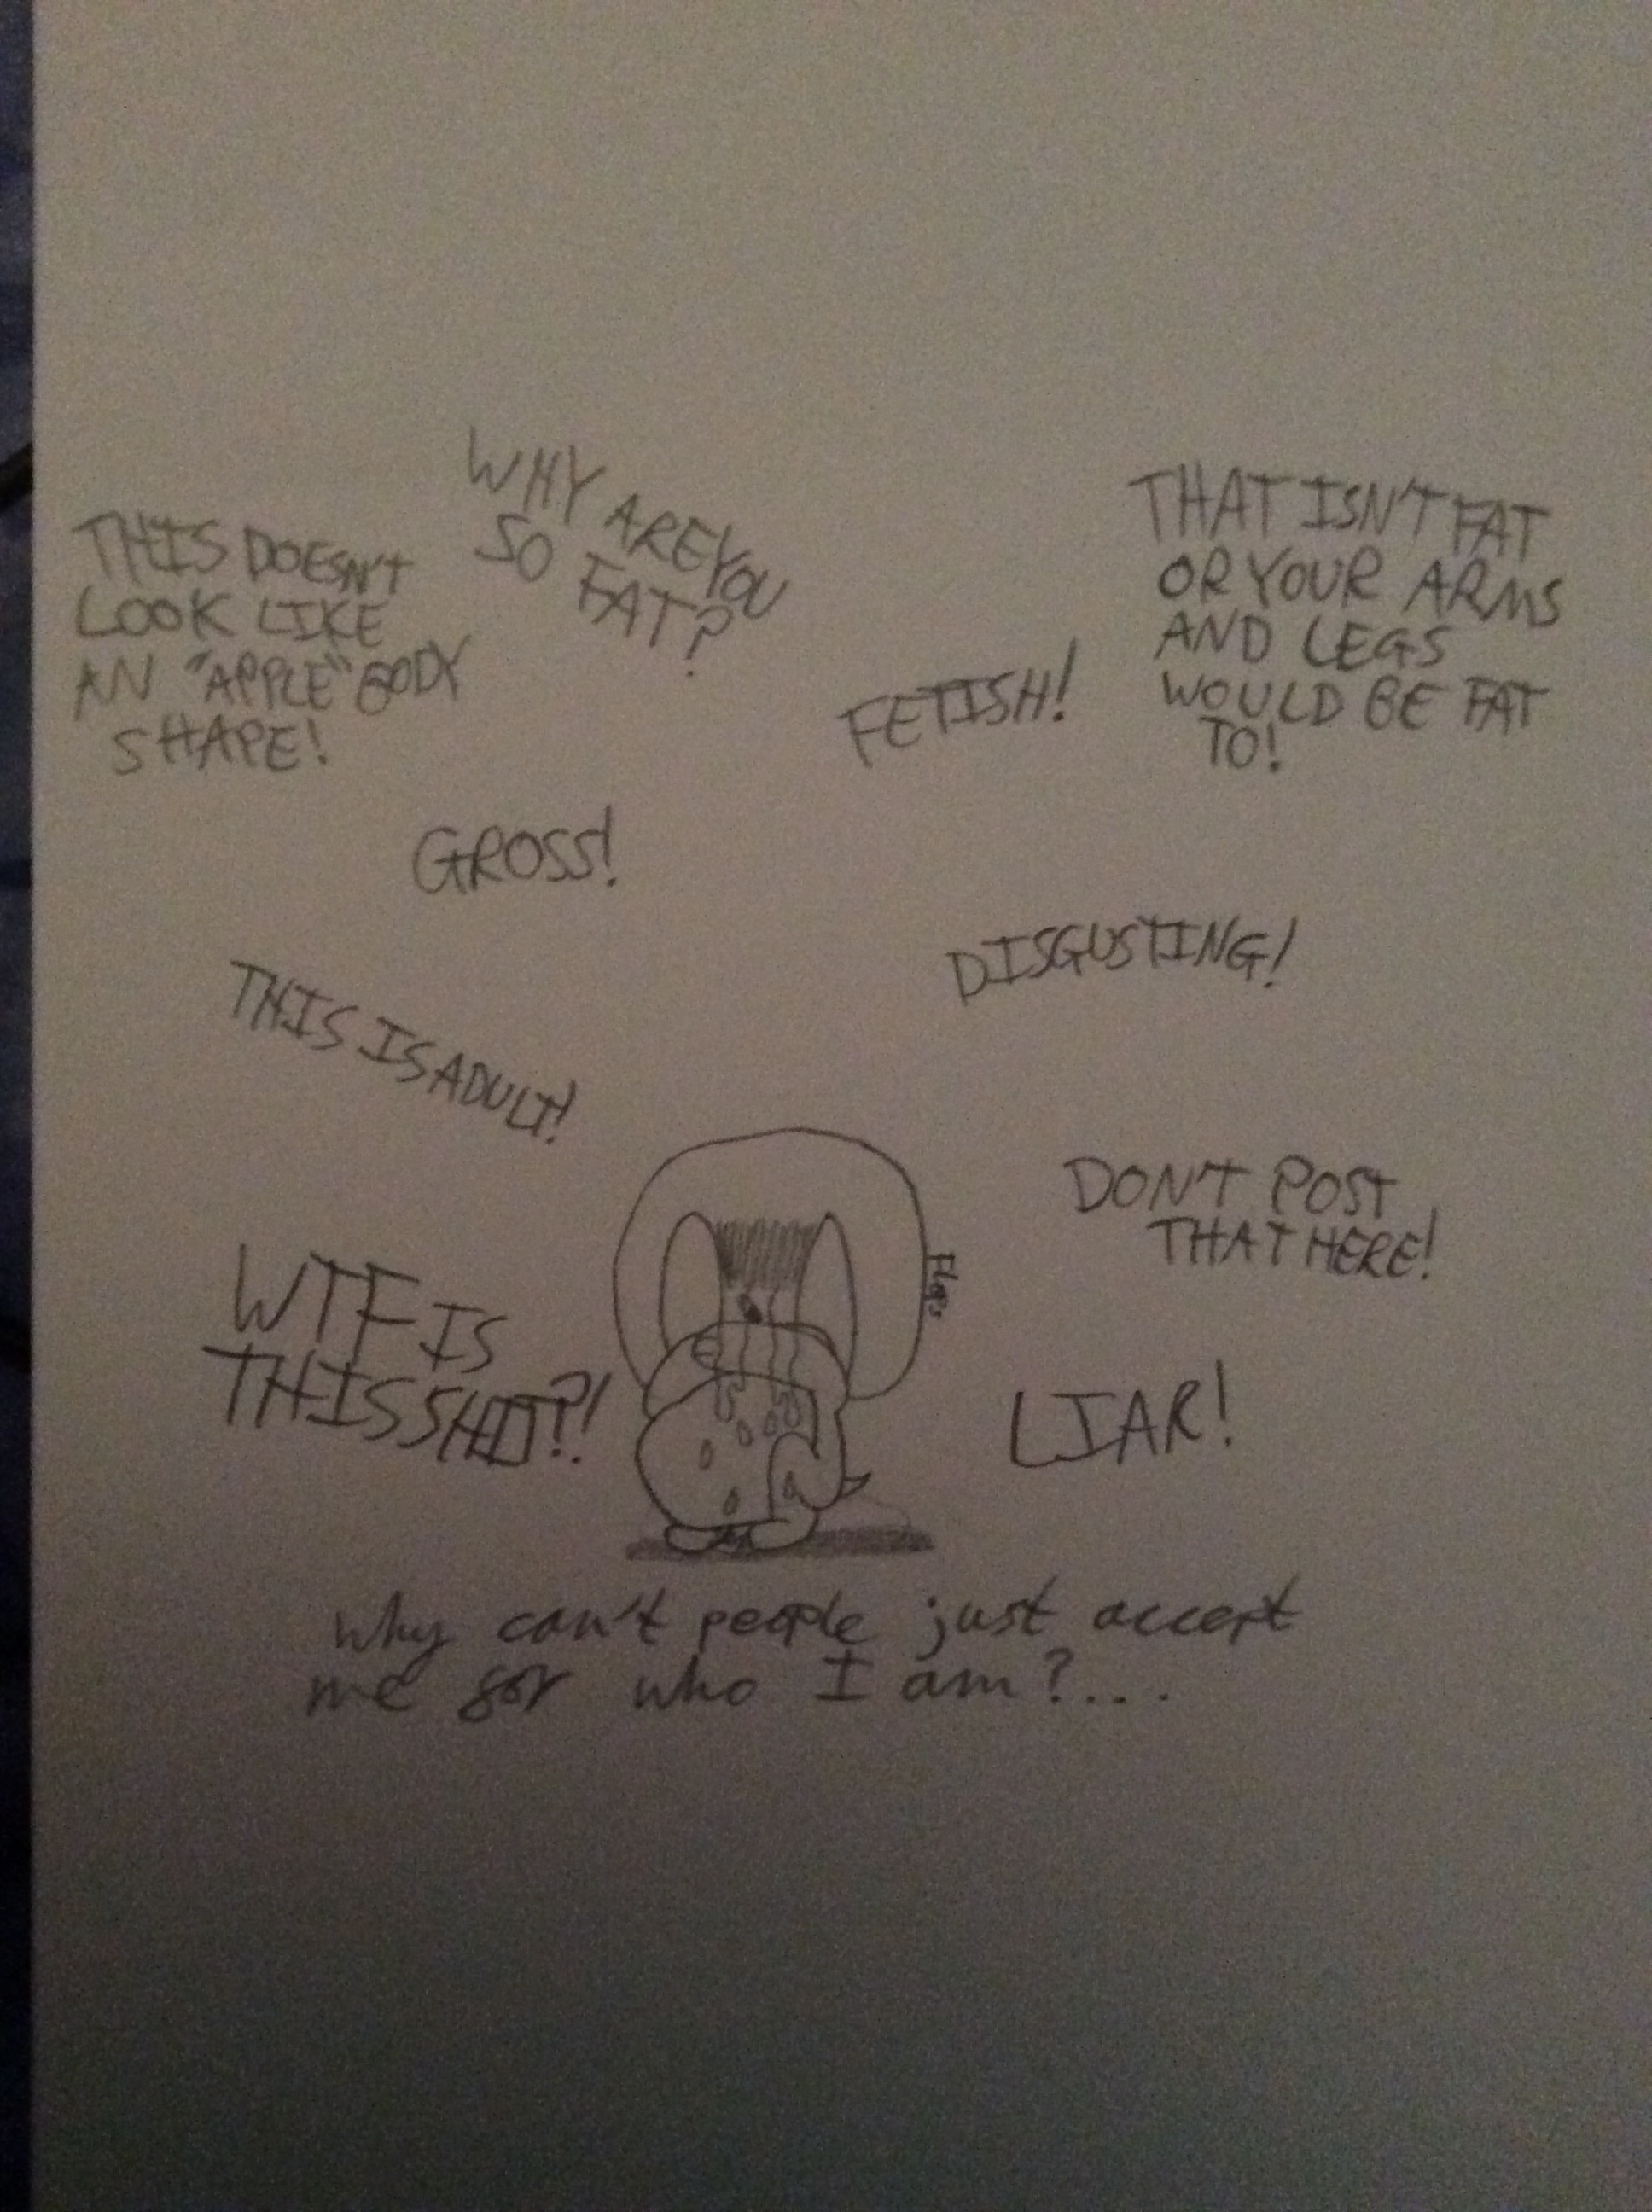 WHY ARE YOU
SO FAT?
THIS DOESN'T
LOOK LIKE
AN "APPLE" BODY
SHAPE!
THAT ISN'T FAT
OR YOUR ARMS
AND LEGS
WOULD BE FAT
TO!
FETISH!
GROSS!
DISGUSTING!
THIS IS ADULT!
DON'T POST
THAT HERE!
Flops
WTF IS
THIS SHIT?!
LIAR!
why can't people just accept
me for who I am?...